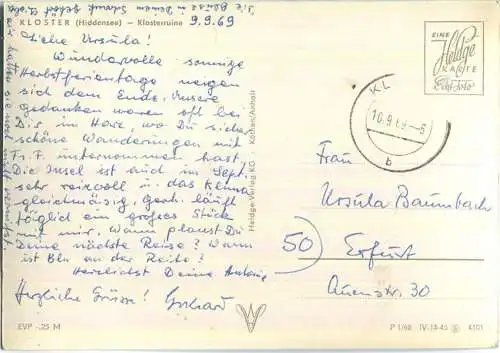 Die Bluse in Deinem Schrank gehört Dir
KLOSTER (Hiddensee) – Klosterruine
9.9.69
Liebe Ursula!
Wundervolle sonnige
Herbstferientage neigen
sich dem Ende. Unsere
Gedanken waren oft bei
Dir im Harz, wo Du sicher
schöne Wanderungen mit
Fr. F. unternommen hast.
Die Insel ist auch im Sept.
sehr reizvoll u. das Klima
gleichmäßig. Gerh. läuft
täglich ein großes Stück
mit mir. Wann planst Du
Deine nächste Reise? Wann
ist Bln an der Reihe?
Herzlichst Deine
Herzliche Grüsse! Gerhard
EVP -.25 M
Heldge-Verlag KG Köthen/Anhalt
EINE
Heldge
KARTE
Echt Foto
KL
10.9.69-6
b
Frau
Ursula Baumbach
50
Erfurt
Auenstr. 30
P 1/68 IV-14-45 4101